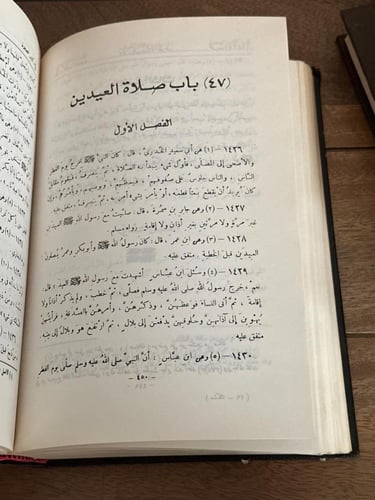 (٤٧) باب صلاة العيدين
الفصل الأول
١٤٢٦ — (١) عن أبي سعيد الخدري، قال: كان النبي ﷺ يخرج يوم الفطر
والأضحى إلى المصلى، فأول شيء يبدأ به الصلاة، ثم ينصرف، فيقوم مقابل
الناس، والناس جلوس على صفوفهم، فيعظهم، ويوصيهم، ويأمرهم، وإن
كان يريد أن يقطع بعثاً قطعه، أو يأمر بشيء أمر به، ثم ينصرف. متفق عليه.
١٤٢٧ — (٢) وعن جابر بن سمرة، قال: صليت مع رسول الله ﷺ العيدين
غير مرة ولا مرتين بغير أذان ولا إقامة. رواه مسلم.
١٤٢٨ — (٣) وعن ابن عمر، قال: كان رسول الله ﷺ وأبو بكر وعمر يصلون
العيدين قبل الخطبة. متفق عليه.
١٤٢٩ — (٤) وسئل ابن عباس: أشهدت مع رسول الله ﷺ العيد؟ قال:
نعم، خرج رسول الله ﷺ فصلى، ثم خطب، ولم يذكر أذاناً ولا
إقامة، ثم أتى النساء فوعظهن، وذكرهن، وأمرهن بالصدقة، فرأيتهن
يهوين إلى آذانهن وحلوقهن يدفعن إلى بلال، ثم ارتفع هو وبلال إلى بيته.
متفق عليه.
١٤٣٠ — (٥) وعن ابن عباس: أن النبي صلى الله عليه وسلم صلى يوم الفطر
— ٤٥٠ —